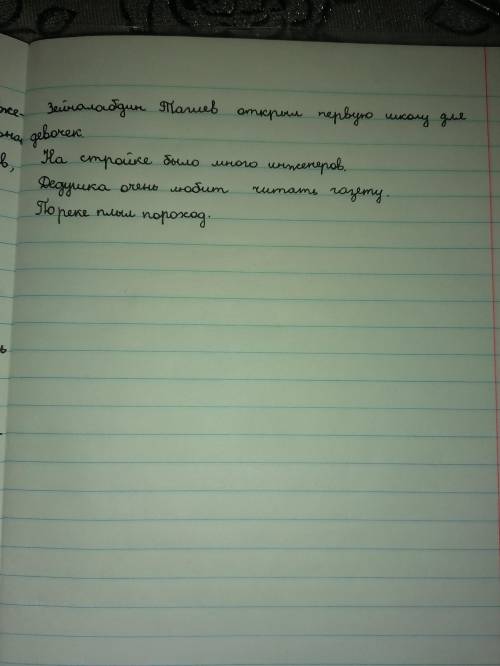 же- Зейналабдин Тагиев открыл первую школу для
она, девочек.
в, На стройке было много инженеров.
Дедушка очень любит читать газету.
По реке плыл пороход.
ь